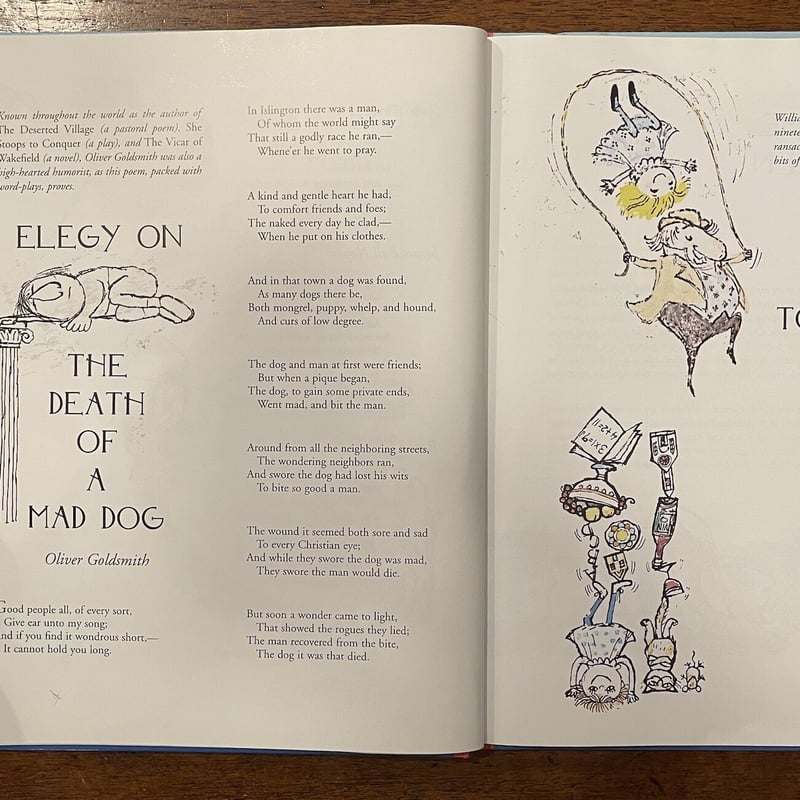 Known throughout the world as the author of
The Deserted Village (a pastoral poem), She
Stoops to Conquer (a play), and The Vicar of
Wakefield (a novel), Oliver Goldsmith was also a
high-hearted humorist, as this poem, packed with
word-plays, proves.
ELEGY ON
THE
DEATH
OF
A
MAD DOG
Oliver Goldsmith
Good people all, of every sort,
Give ear unto my song;
And if you find it wondrous short,—
It cannot hold you long.
In Islington there was a man,
Of whom the world might say
That still a godly race he ran,—
Whene'er he went to pray.
A kind and gentle heart he had,
To comfort friends and foes;
The naked every day he clad,—
When he put on his clothes.
And in that town a dog was found,
As many dogs there be,
Both mongrel, puppy, whelp, and hound,
And curs of low degree.
The dog and man at first were friends;
But when a pique began,
The dog, to gain some private ends,
Went mad, and bit the man.
Around from all the neighboring streets,
The wondering neighbors ran,
And swore the dog had lost his wits
To bite so good a man.
The wound it seemed both sore and sad
To every Christian eye;
And while they swore the dog was mad,
They swore the man would die.
But soon a wonder came to light,
That showed the rogues they lied;
The man recovered from the bite,
The dog it was that died.
Willia
ninete
ransac
bits of
TO
4+2=11
3X1=9